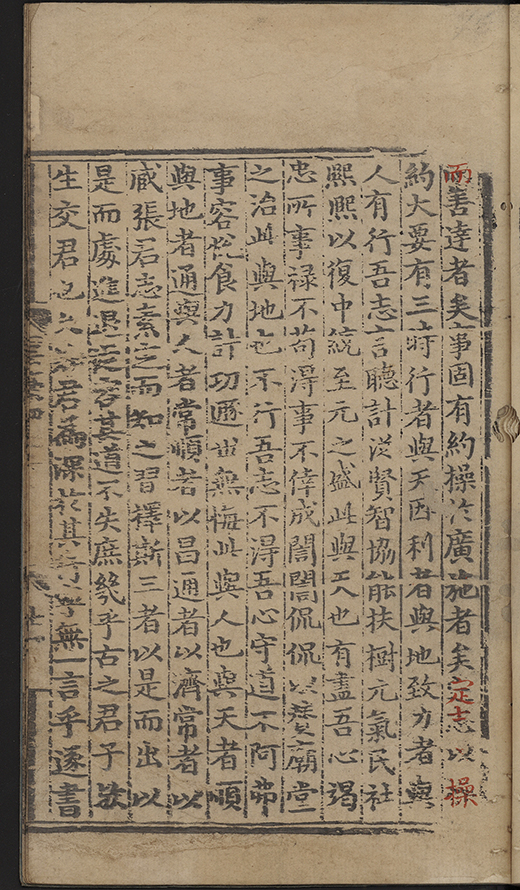 而善達者矣事固有約操於廣施者矣定志以操
約大要有三時行者與天因利者與地致力者與
人有行吾志言聽計從賢智協能扶樹元氣民社
熙熙以復中統至元之盛此與天也有盡吾心竭
忠所事祿不苟淂事不倖成誾誾侃侃以賛廟堂
之治此與地也不行吾志不得吾心守道不阿弗
事容悦食力計功遯世無悔此與人也與天者順
與地者通與人者常順者以昌通者以濟常者以
咸張君志素定而知之習擇斯三者以是而出以
是而處進退從容其道不失庶幾乎古之君子哉
生交君也久於君爲深於其行乎無一言乎遂書